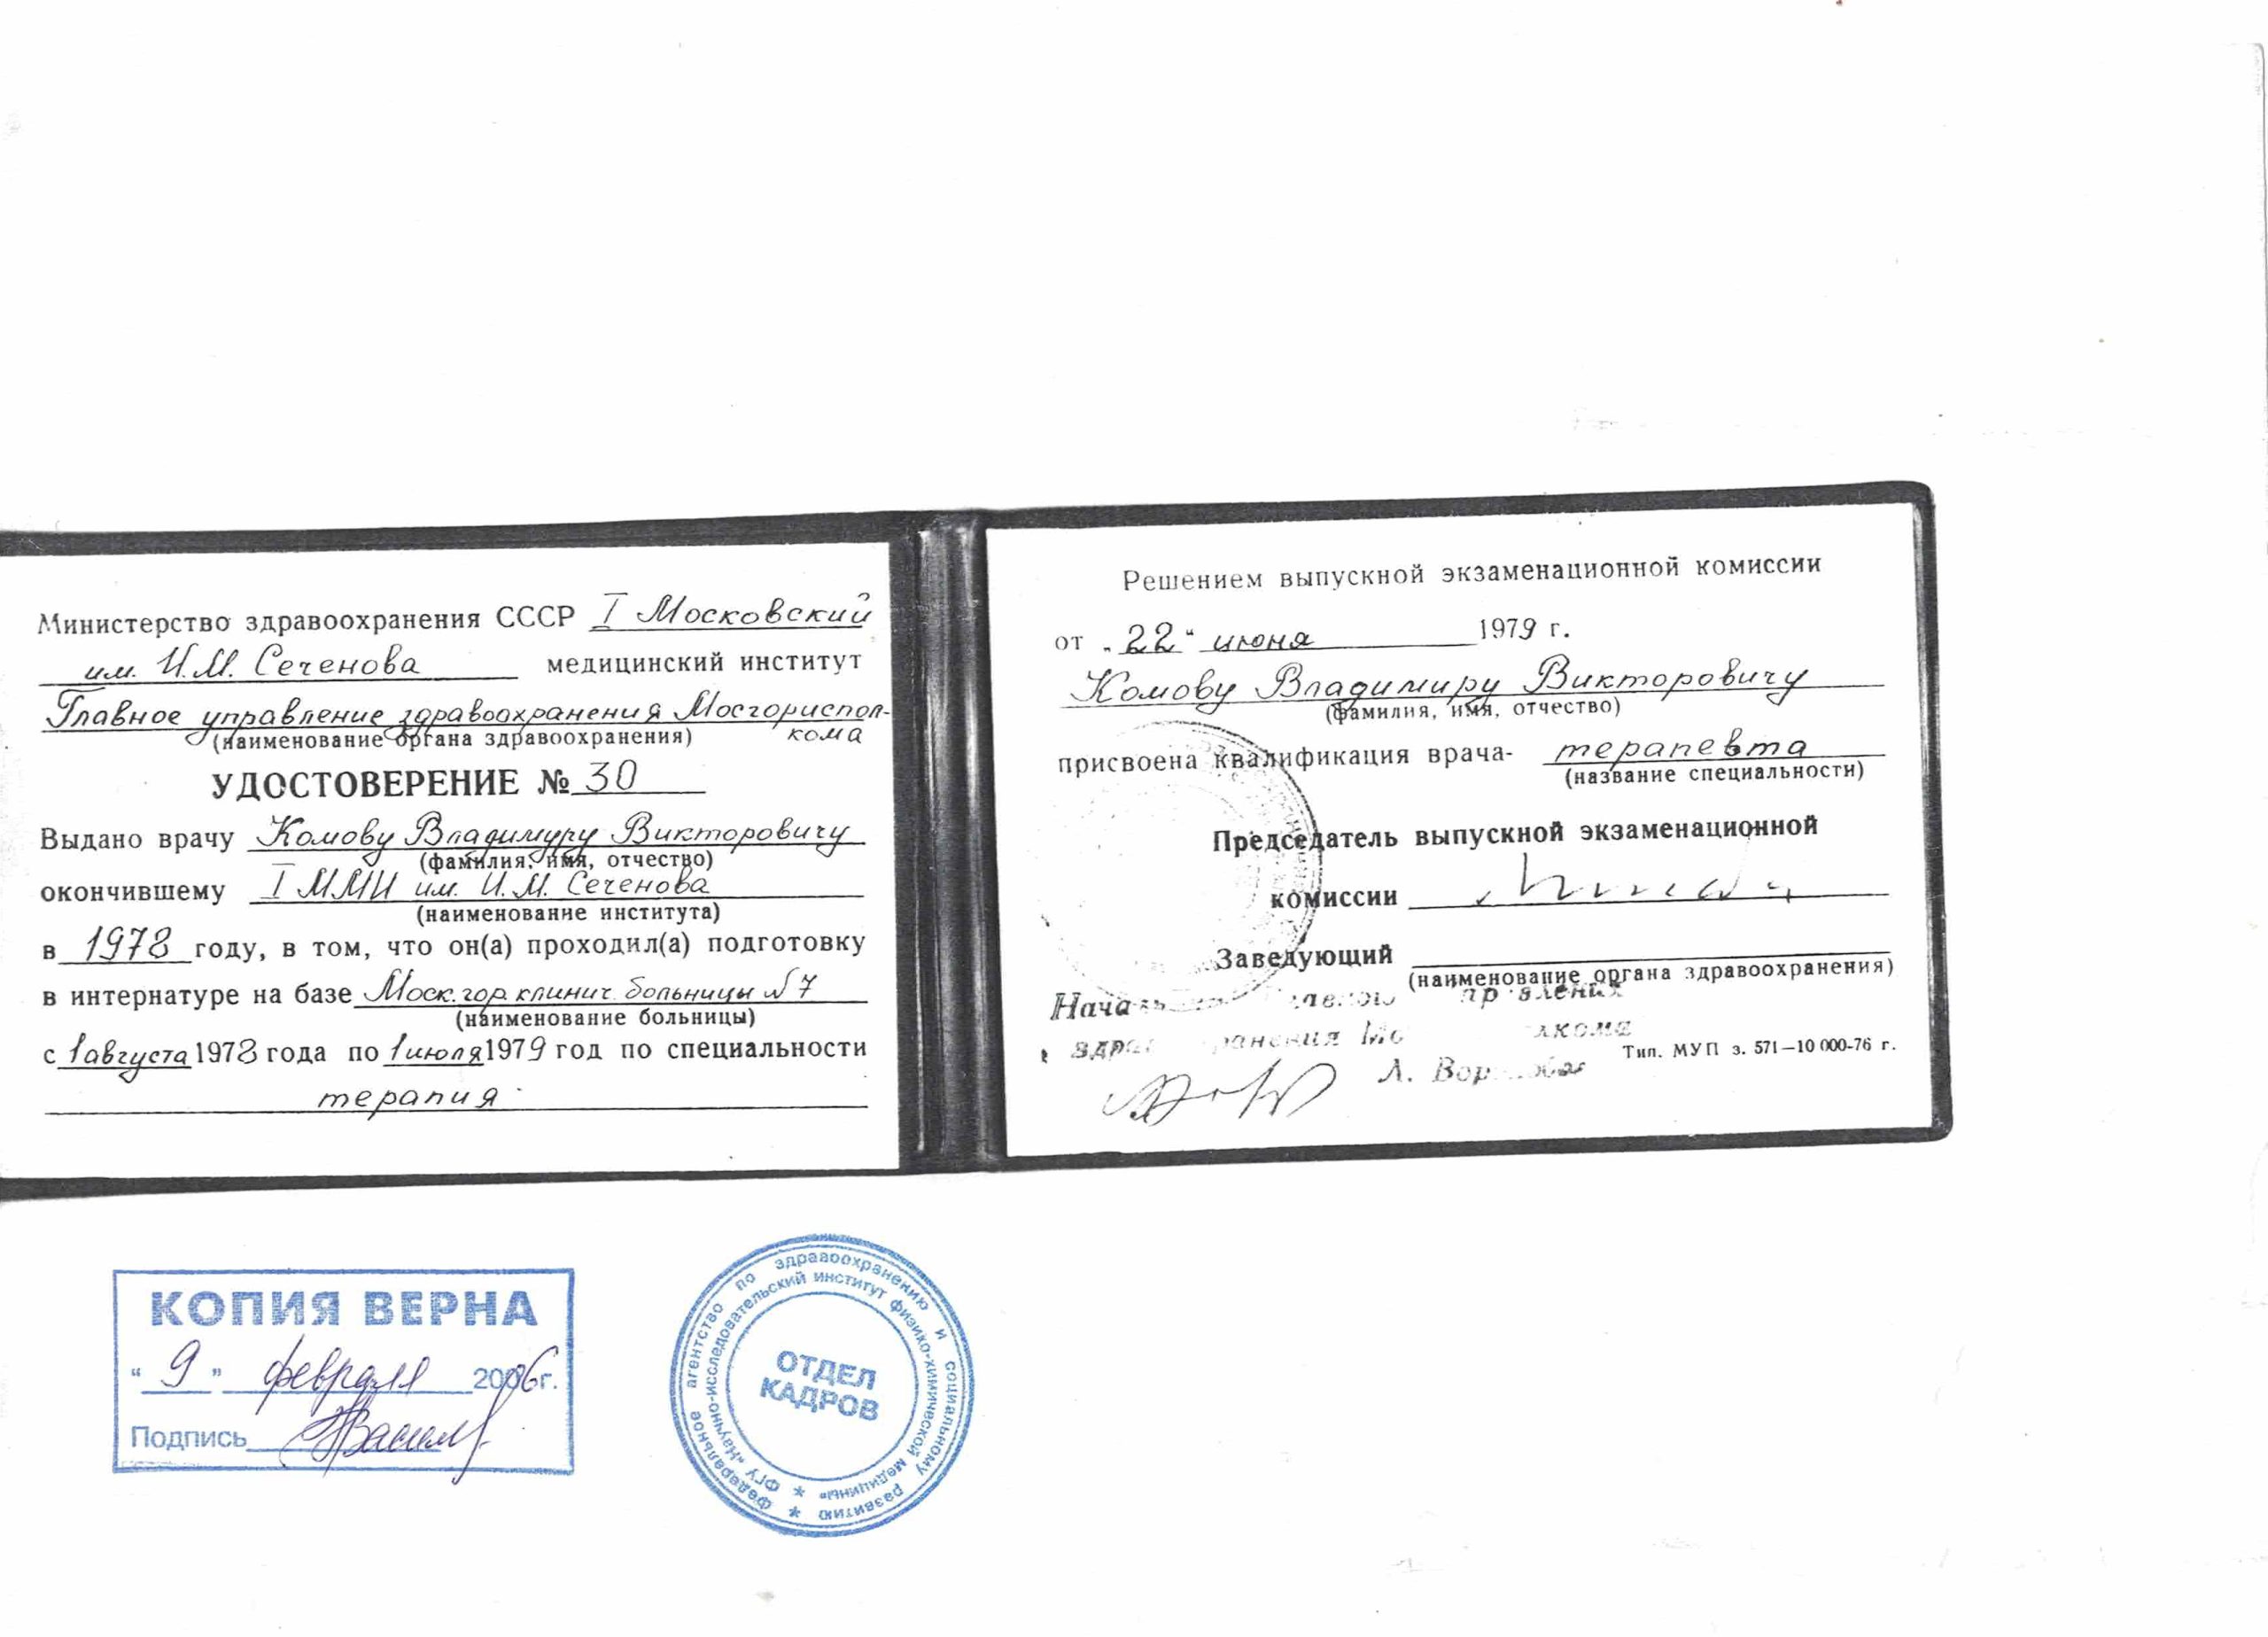 Министерство здравоохранения СССР I Московский
им. И.М. Сеченова медицинский институт
Главное управление здравоохранения Мосгориспол-
(наименование органа здравоохранения) кома
УДОСТОВЕРЕНИЕ № 30
Выдано врачу Комову Владимиру Викторовичу
(фамилия, имя, отчество)
окончившему I ММИ им. И.М. Сеченова
(наименование института)
в 1978 году, в том, что он(а) проходил(а) подготовку
в интернатуре на базе Моск. гор. клинич. больницы №7
(наименование больницы)
с 1 августа 1978 года по 1 июля 1979 год по специальности
терапия
Решением выпускной экзаменационной комиссии
от „22" июня 1979 г.
Комову Владимиру Викторовичу
(фамилия, имя, отчество)
присвоена квалификация врача- терапевта
(название специальности)
Председатель выпускной экзаменационной
комиссии
Заведующий
(наименование органа здравоохранения)
Тип. МУП з. 571—10 000-76 г.
А.
КОПИЯ ВЕРНА
"9" февраля 2006г.
Подпись
Федеральное агентство по здравоохранению и социальному развитию
ФГУ «Научно-исследовательский институт физико-химической медицины»
ОТДЕЛ
КАДРОВ